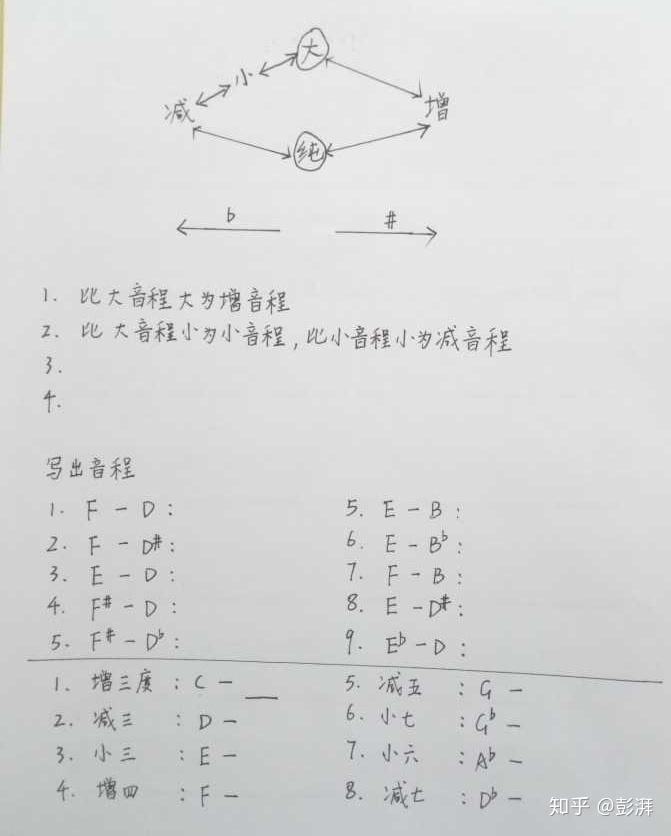 大
小
减
增
纯
b
#
1. 比大音程大为增音程
2. 比大音程小为小音程,比小音程小为减音程
3.
4.
写出音程
1. F - D :
2. F - D# :
3. E - D :
4. F# - D :
5. F# - Db :
5. E - B :
6. E - Bb :
7. F - B :
8. E - D# :
9. Eb - D :
1. 增三度 : C - __
2. 减三 : D -
3. 小三 : E -
4. 增四 : F -
5. 减五 : G -
6. 小七 : Gb -
7. 小六 : Ab -
8. 减七 : Db -
知乎 @彭湃